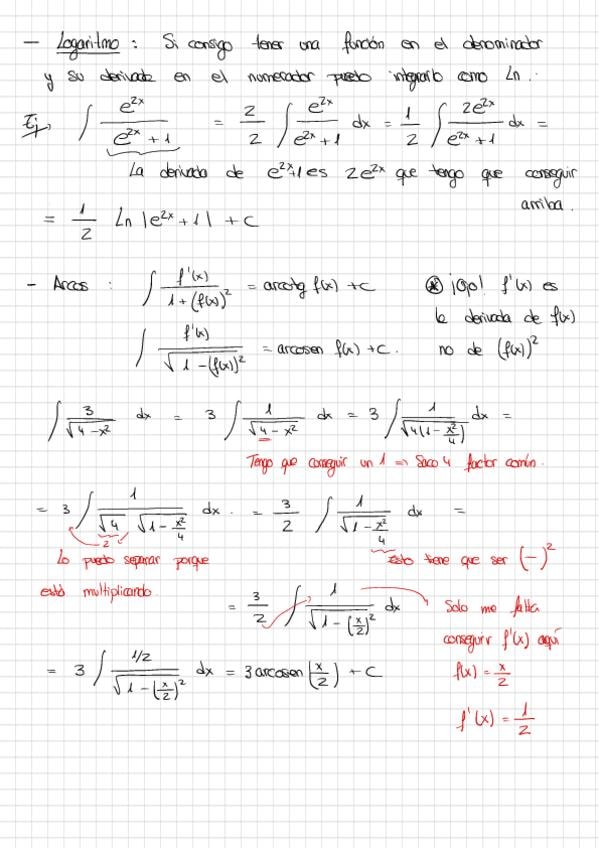 - Logaritmo : Si consigo tener una función en el denominador
y su derivada en el numerador puedo integrarlo como Ln.
Ej, ∫ e^(2x)/(e^(2x) + 1) = 2/2 ∫ e^(2x)/(e^(2x) + 1) dx = 1/2 ∫ 2e^(2x)/(e^(2x) + 1) dx =
La derivada de e^(2x)+1 es 2e^(2x) que tengo que conseguir
arriba.
= 1/2 Ln |e^(2x) + 1| + C
- Arcos : ∫ f'(x)/(1 + (f(x))^2 = arcotg f(x) + C
∫ f'(x)/√(1 - (f(x))^2) = arcosen f(x) + C.
⊛ ¡Ojo! f'(x) es
la derivada de f(x)
no de (f(x))^2
∫ 3/√(4 - x^2) dx = 3 ∫ 1/√(4 - x^2) dx = 3 ∫ 1/√(4(1 - x^2/4)) dx =
Tengo que conseguir un 1 => Saco 4 factor común.
= 3 ∫ 1/(√4 √(1 - x^2/4)) dx. = 3/2 ∫ 1/√(1 - x^2/4) dx =
2
Lo puedo separar porque
está multiplicando.
Esto tiene que ser (-)^2
= 3/2 ∫ 1/√(1 - (x/2)^2) dx
Solo me falta
conseguir f'(x) aquí
f(x) = x/2
f'(x) = 1/2
= 3 ∫ (1/2)/√(1 - (x/2)^2) dx = 3 arcosen (x/2) + C